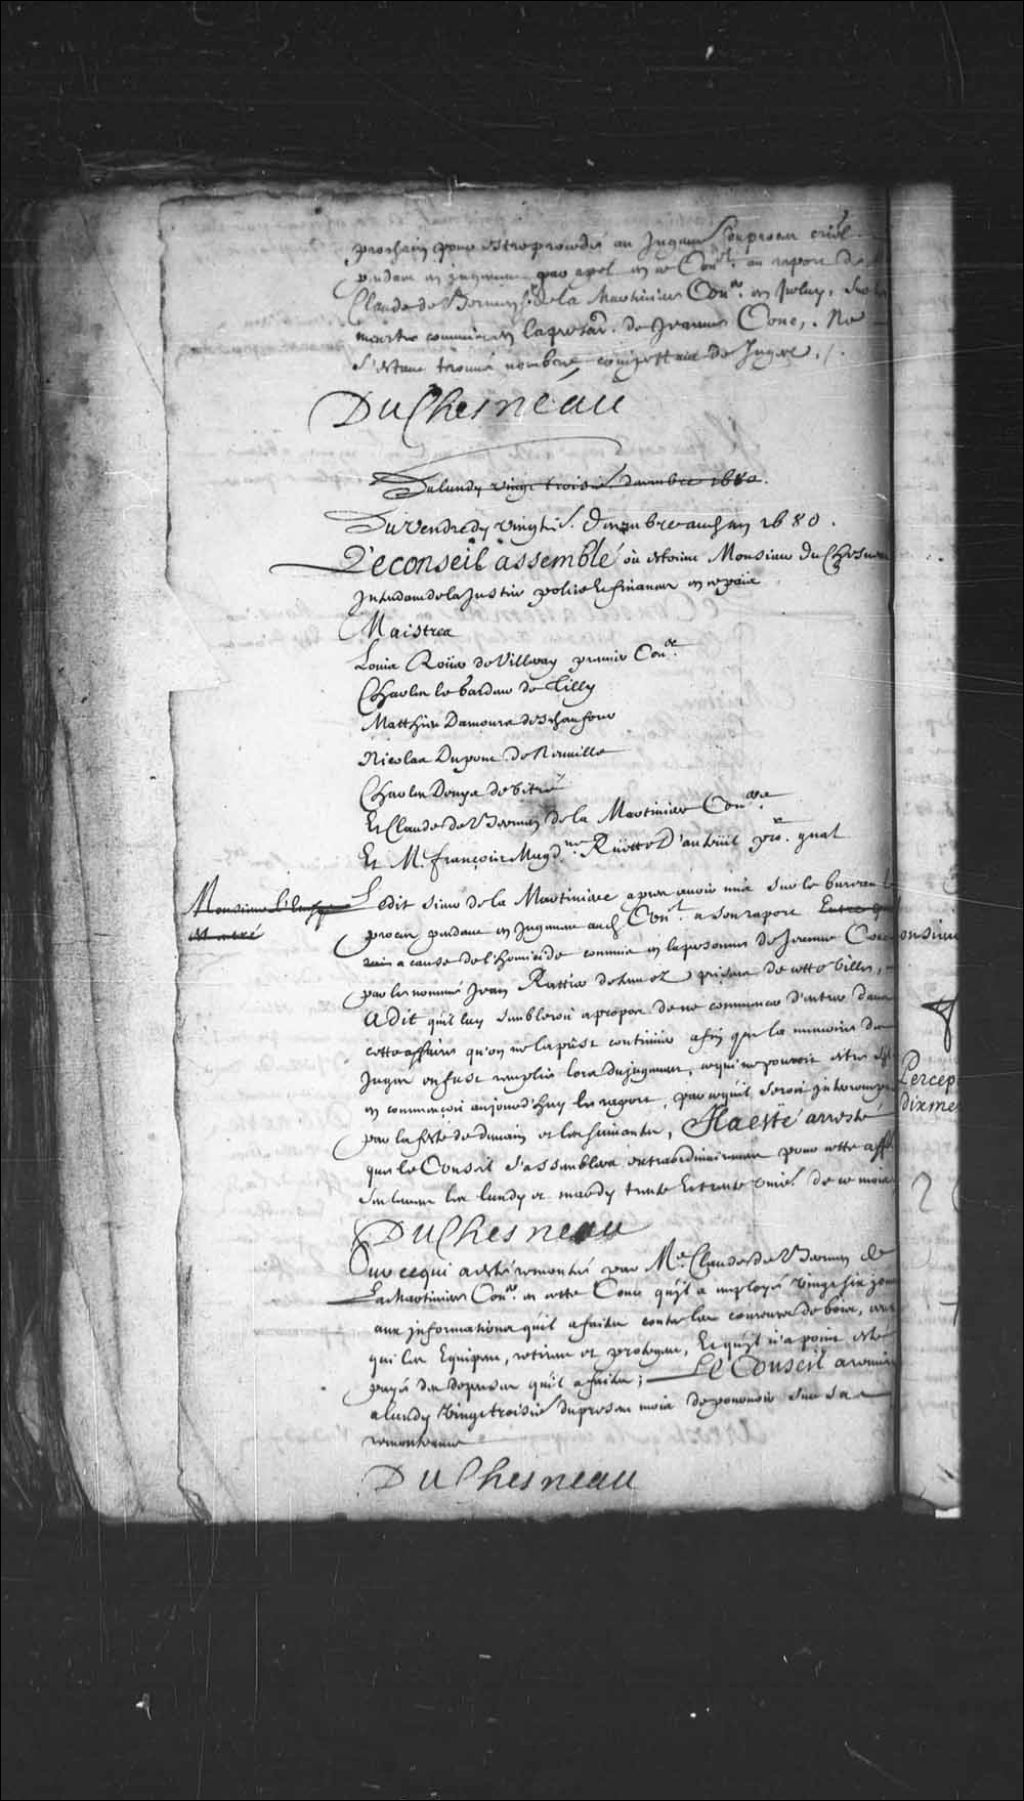 prochain pour estre procedé au Jugemt du procez criel
pendant en jugement par apel en ce Conlt. au raport de
Claude de Bermen Sr. de la Martiniere Conr. en jceluy, Sur le
meurtre commis en la persoe. de Jeanne Couc, Ne
s'estant trouvé nombre compettant de Juges ./.
DuChesneau
Du lundy vingt troisie Decembre 1680.
Du Vendredy vingtie. Decembre aud an 1680.
Le conseil assemblé où estoient Monsieur DuChesneau
Intendant de la Justice police et finances en ce païs
Maistres
Louis Roüer de Villeray premier Conr.
Charles le Gardeur de Tilly
Matthieu Damours Deschaufour
Nicolas Dupont de Neuville
Charles Denys de Vitré
Et Claude de Bermen de la Martiniere Coners
Et M. françois Magdne. Rüette D'auteüil pror. gnal
Monsieur
Ledit sieur de la Martiniere apres avoir mis sur le bureau le
procez pendant en Jugement aud Conlt. a son raport Entre
a cause de l'homicide commis en la personne de Jeanne Couc
par les nommé Jean Rattier detenu ez prisons de cette Ville,
A dit qu'il luy sembleroit apropos de ne commencer d'entrer dans
cette affaire qu'on ne la pust continuer afin que la memoire des
Juges en fust remplie lors du jugement, ce qui ne pourroit estre si
en commençoit aujourd'huy le raport, parce qu'il seroit interompu
par la feste de demain et les suivantes, Il a esté arresté
que le Conseil s'assemblera extraordinairement pour cette affe
seulement les lundy et mardy trente et trente unie. de ce mois
DuChesneau
Sur ce qui a esté remontré par Me. Claude de Bermen de
La Martiniere Conr. en cette Cour qu'il a employé vingt six jours
aux jnformations qu'il a faites contre les coureurs de bois, ceux
qui les Equipent, retirent et protegent, Et qu'il n'a point esté
payé des depenses qu'il a faites; Le Conseil a remis
a lundy vingt troisie du present mois de pourvoir sur sa
remontrance
DuChesneau
onsieur
Percep
dixme